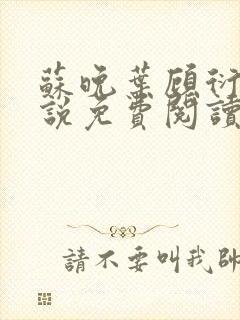 蘇晚葉顧衍
說免費閱讀
請不要叫我帥